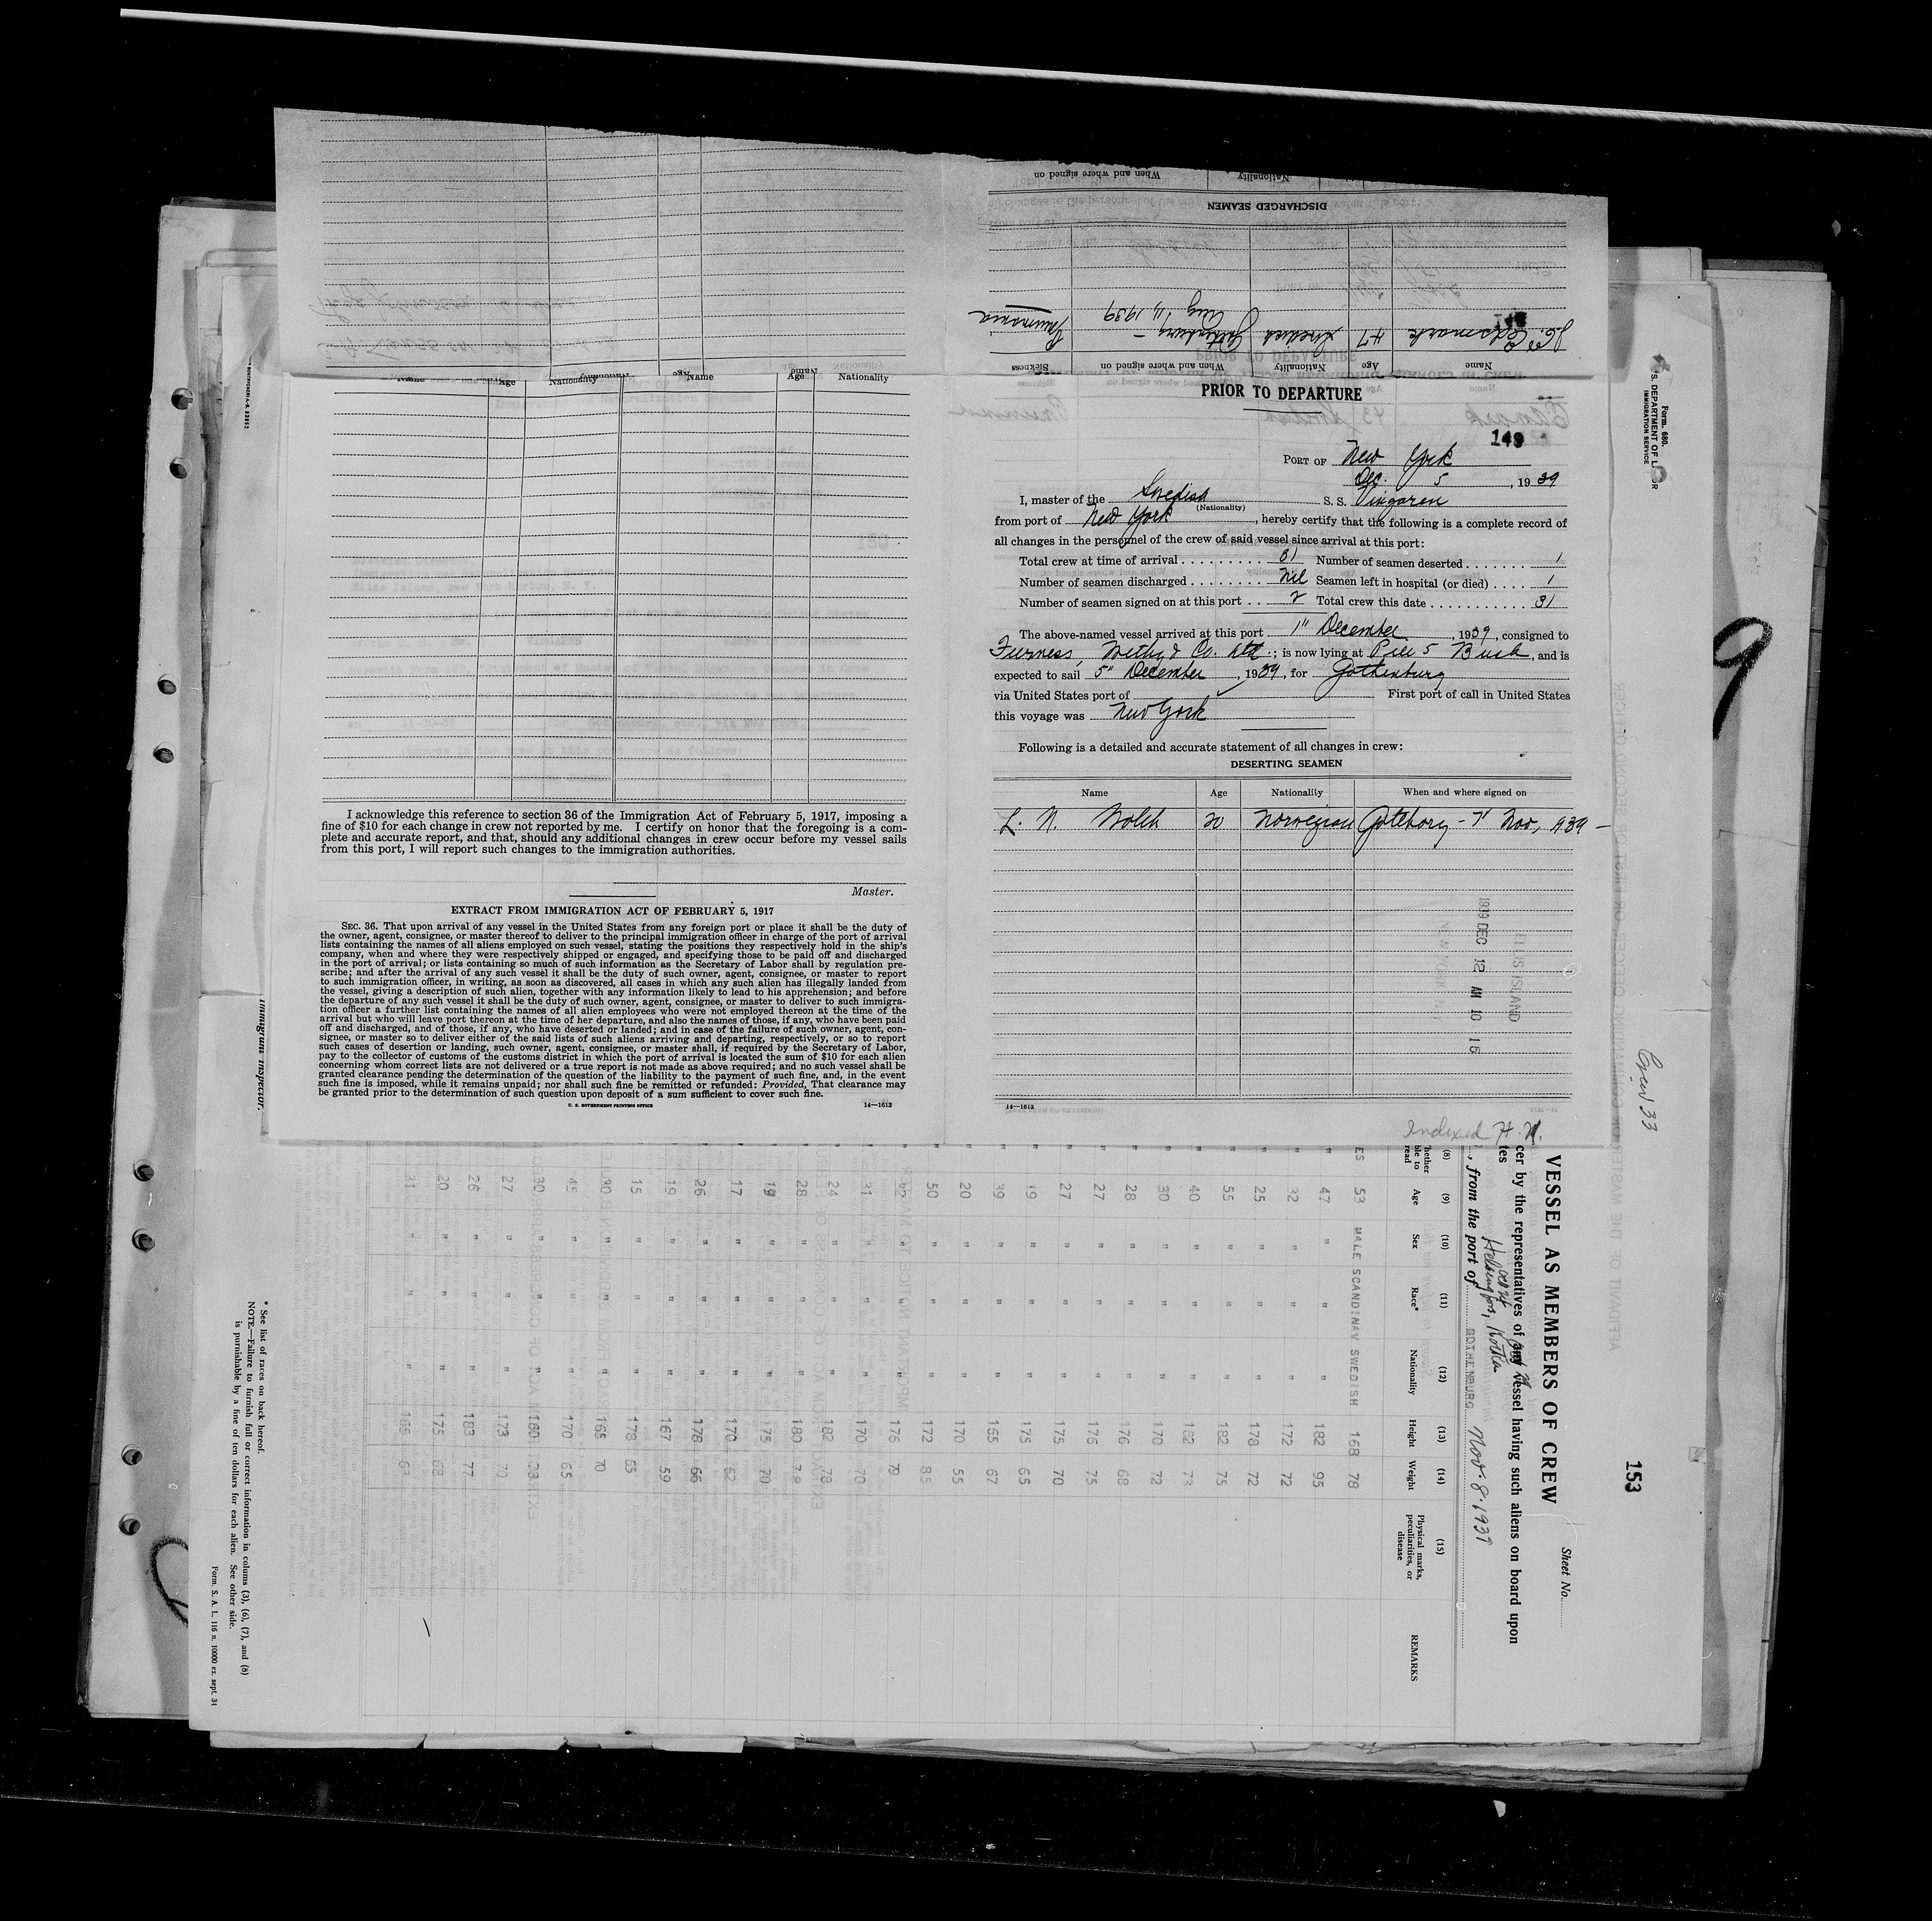 When and where signed on Nationality
DISCHARGED SEAMEN
Aug 11, 1939
47 Swedish Gothenburg
Name Age Nationality When and where signed on Sickness
Age Nationality Name Age Nationality
PRIOR TO DEPARTURE
149
PORT OF New York
Dec. 5, 1939
I, master of the Swedish S. S. Vingaren
(Nationality)
from port of New York, hereby certify that the following is a complete record of
all changes in the personnel of the crew of said vessel since arrival at this port:
Total crew at time of arrival .......... 31 Number of seamen deserted ....... 1
Number of seamen discharged ........ Nil Seamen left in hospital (or died) .... 1
Number of seamen signed on at this port .. 2 Total crew this date ............ 31
The above-named vessel arrived at this port 1" December, 1939, consigned to
Furness, Withy & Co. Ltd.; is now lying at Pier 5 Bush, and is
expected to sail 5" December, 1939, for Gothenburg
via United States port of First port of call in United States
this voyage was New York
Following is a detailed and accurate statement of all changes in crew:
DESERTING SEAMEN
Name Age Nationality When and where signed on
L. N. 20 Norwegian Goteborg - 7' Nov, 1939 -
1939 DEC 12 AM 10 16
ELLIS ISLAND
14—1612
Indexed H. N.
I acknowledge this reference to section 36 of the Immigration Act of February 5, 1917, imposing a
fine of $10 for each change in crew not reported by me. I certify on honor that the foregoing is a com-
plete and accurate report, and that, should any additional changes in crew occur before my vessel sails
from this port, I will report such changes to the immigration authorities.
Master.
EXTRACT FROM IMMIGRATION ACT OF FEBRUARY 5, 1917
SEC. 36. That upon arrival of any vessel in the United States from any foreign port or place it shall be the duty of
the owner, agent, consignee, or master thereof to deliver to the principal immigration officer in charge of the port of arrival
lists containing the names of all aliens employed on such vessel, stating the positions they respectively hold in the ship's
company, when and where they were respectively shipped or engaged, and specifying those to be paid off and discharged
in the port of arrival; or lists containing so much of such information as the Secretary of Labor shall by regulation pre-
scribe; and after the arrival of any such vessel it shall be the duty of such owner, agent, consignee, or master to report
to such immigration officer, in writing, as soon as discovered, all cases in which any such alien has illegally landed from
the vessel, giving a description of such alien, together with any information likely to lead to his apprehension; and before
the departure of any such vessel it shall be the duty of such owner, agent, consignee, or master to deliver to such immigra-
tion officer a further list containing the names of all alien employees who were not employed thereon at the time of the
arrival but who will leave port thereon at the time of her departure, and also the names of those, if any, who have been paid
off and discharged, and of those, if any, who have deserted or landed; and in case of the failure of such owner, agent, con-
signee, or master so to deliver either of the said lists of such aliens arriving and departing, respectively, or so to report
such cases of desertion or landing, such owner, agent, consignee, or master shall, if required by the Secretary of Labor,
pay to the collector of customs of the customs district in which the port of arrival is located the sum of $10 for each alien
concerning whom correct lists are not delivered or a true report is not made as above required; and no such vessel shall be
granted clearance pending the determination of the question of the liability to the payment of such fine, and, in the event
such fine is imposed, while it remains unpaid; nor shall such fine be remitted or refunded: Provided, That clearance may
be granted prior to the determination of such question upon deposit of a sum sufficient to cover such fine.
U. S. GOVERNMENT PRINTING OFFICE 14—1612
Form 680.
U.S. DEPARTMENT OF LABOR
IMMIGRATION SERVICE
9
Crew 33
153
Sheet No.
VESSEL AS MEMBERS OF CREW
cer by the representatives of any vessel having such aliens on board upon
Helsingfors, Kotka
, from the port of GOTHENBURG Nov. 8. 1939
(8) (9) (10) (11) (12) (13) (14) (15)
Age Sex Race* Nationality Height Weight Physical marks, peculiarities, or disease REMARKS
ES 53 MALE SCANDINAV SWEDISH 168 78
" 47 " " " 182 95
" 32 " " " 172 72
" 25 " " " 178 72
" 55 " " " 182 75
" 40 " " " 182 73
" 30 " " " 170 72
" 28 " " " 176 68
" 27 " " " 176 75
" 27 " " " 175 70
" 19 " " " 175 65
" 39 " " " 165 67
" 20 " " " 170 55
" 50 " " " 172 85
" 32 " " " 176 79
" 31 " " " 170 70
" 24 " " " 182 78
" 28 " " " 180 78
" 19 " " " 175 70
" 17 " " " 170 62
" 26 " " " 178 66
" 19 " " " 167 59
" 15 " " " 178 65
" 30 " " " 165 70
" 45 " " " 170 65
" 30 " " " 180
" 27 " " " 173 70
" 26 " " " 183 77
" 20 " " " 175 68
" 31 " " " 165
* See list of races on back hereof.
NOTE.—Failure to furnish full or correct information in colums (3), (6), (7), and (8)
is punishable by a fine of ten dollars for each alien. See other side.
Form. S. A. L. 116 n. 10000 ex. sept. 34
Immigrant Inspector.